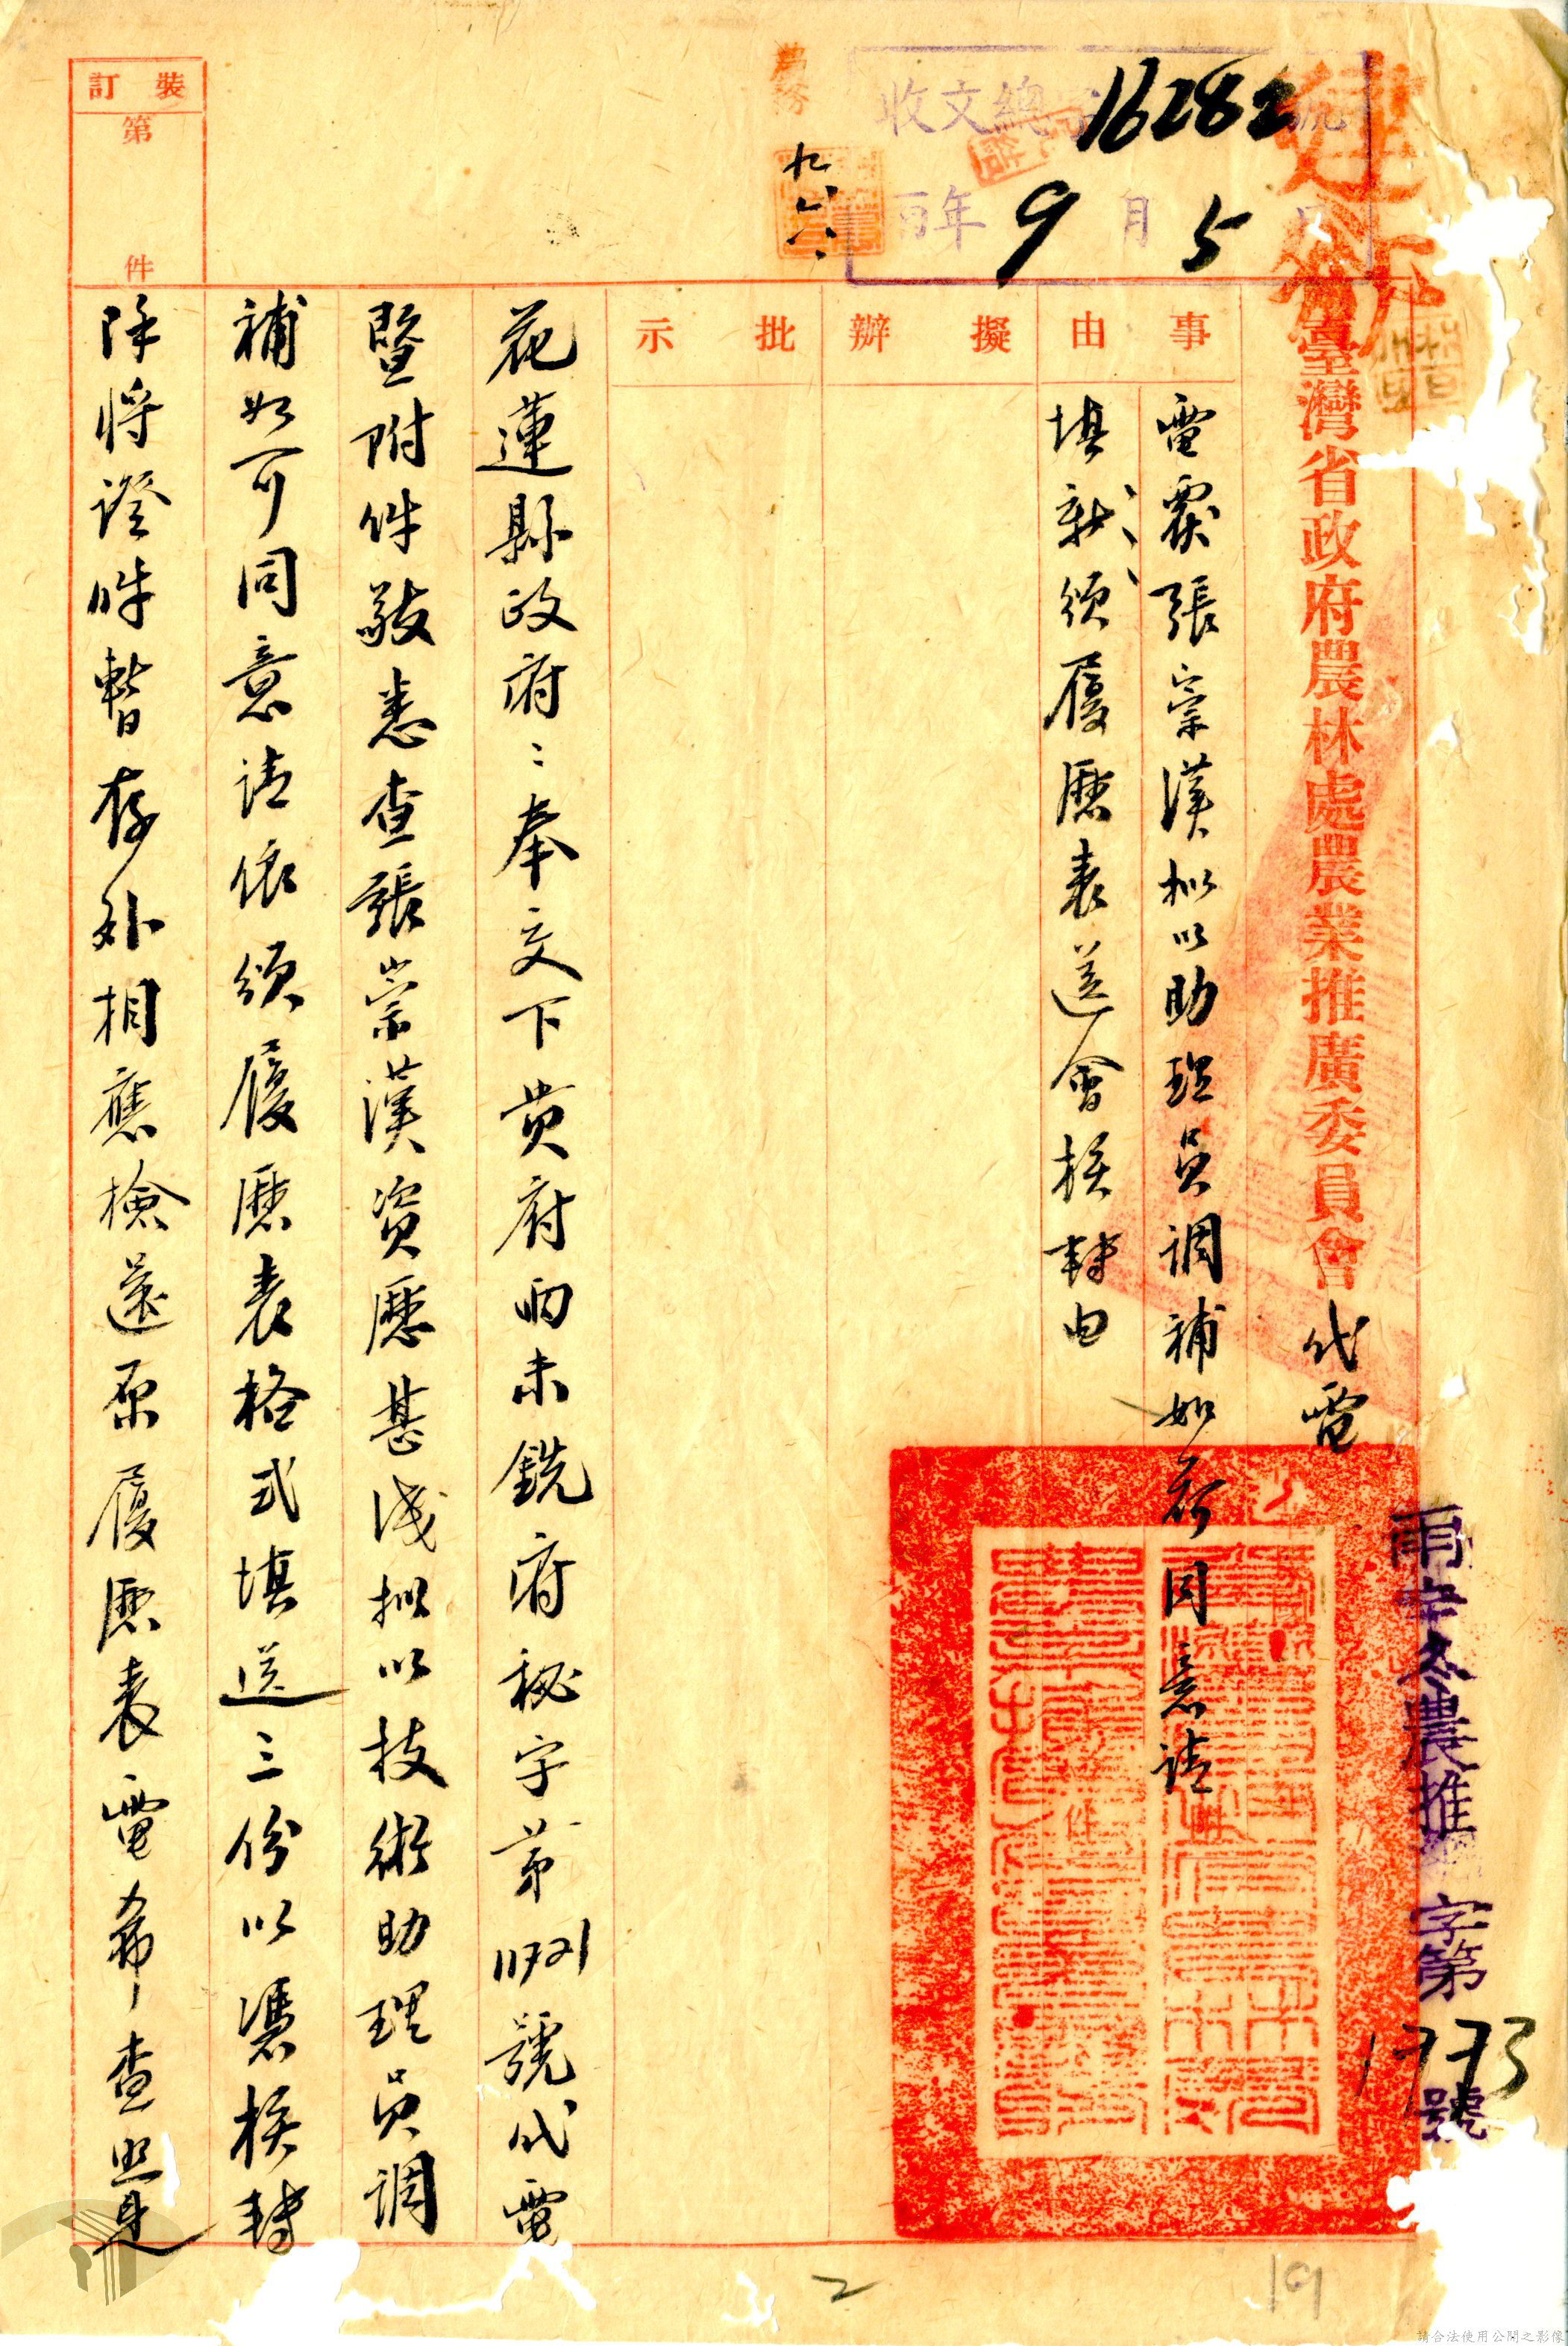 收文總字16282號
年9月5日
九、六、
裝訂
第 件
臺灣省政府農林處農業推廣委員會代電
農推 字第1773號
事由
擬辦
批示
電覆張崇漢擬以助理員調補如荷同意請
填就頒履歷表送會核轉由
花蓮縣政府：奉交下貴府 未銑府秘字第 號代電
暨附件敬悉查張崇漢資歷甚淺擬以技術助理員調
補如可同意請依頒履歷表格式填送三份以憑核轉
除將證件暫存外相應檢還原履歷表電希查照
2
19
請合法使用公開之影像